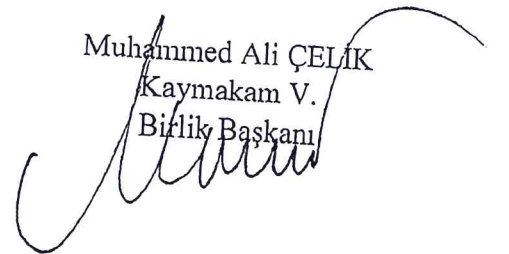 Muhammed Ali ÇELİK
Kaymakam V.
Birlik Başkanı